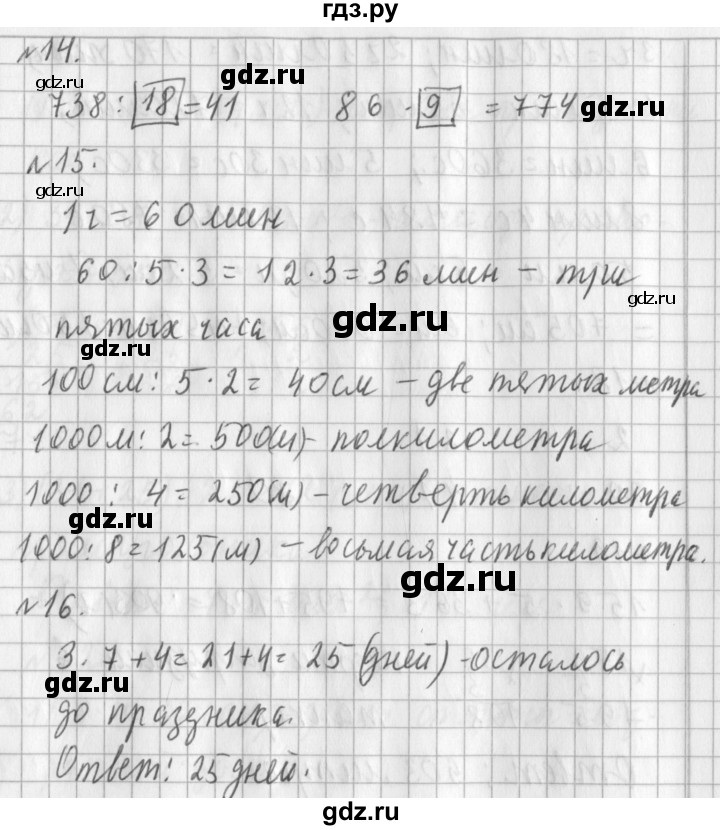 гдз.ру
№14.
gdz.ru gdz.ru
738 : 18 = 41 86 · 9 = 774 gdz.ru
№15.
gdz.ru
1 ч = 60 мин
60 : 5 · 3 = 12 · 3 = 36 мин – три
gdz.ru
пятых часа gdz.ru
gdz.ru
100 см : 5 · 2 = 40 см – две пятых метра
1000 м : 2 = 500 (м) – полкилометра
1000 : 4 = 250 (м) – четверть километра
gdz.ru
1000 : 8 = 125 (м) – восьмая часть километра.
gdz.ru
№16.
3 · 7 + 4 = 21 + 4 = 25 (дней) – осталось
gdz.ru gdz.ru
до праздника.
Ответ: 25 дней.
gdz.ru